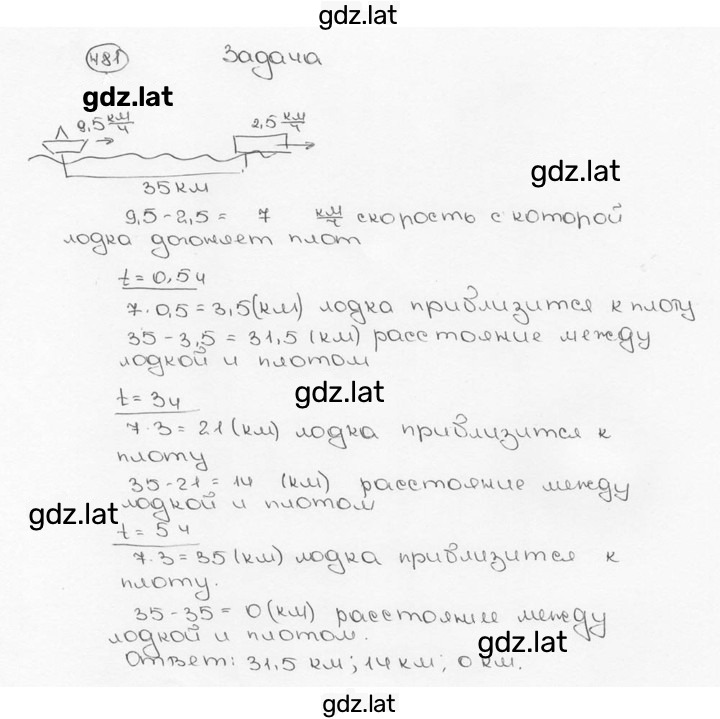 gdz.lat
481 Задача
gdz.lat
9,5 км/ч 2,5 км/ч
gdz.lat
35 км
9,5 - 2,5 = 7 км/ч скорость с которой
лодка догоняет плот
t = 0,5 ч
7 · 0,5 = 3,5 (км) лодка приблизится к плоту
35 - 3,5 = 31,5 (км) расстояние между
лодкой и плотом
gdz.lat
t = 3 ч
7 · 3 = 21 (км) лодка приблизится к
плоту
35 - 21 = 14 (км) расстояние между
лодкой и плотом
gdz.lat
t = 5 ч
7 · 3 = 35 (км) лодка приблизится к
плоту.
35 - 35 = 0 (км) расстояние между
лодкой и плотом.
gdz.lat
Ответ: 31,5 км; 14 км; 0 км.
gdz.lat